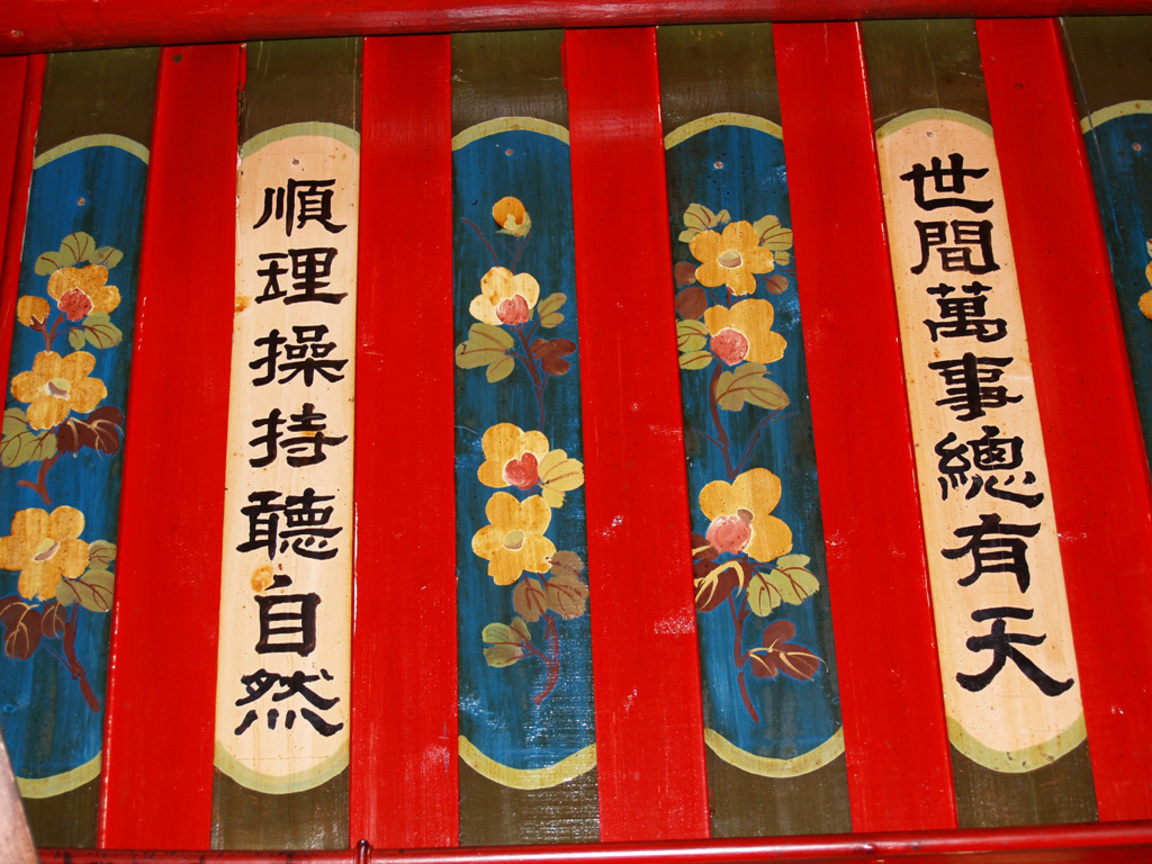 世間萬事總有天
順理操持聽自然